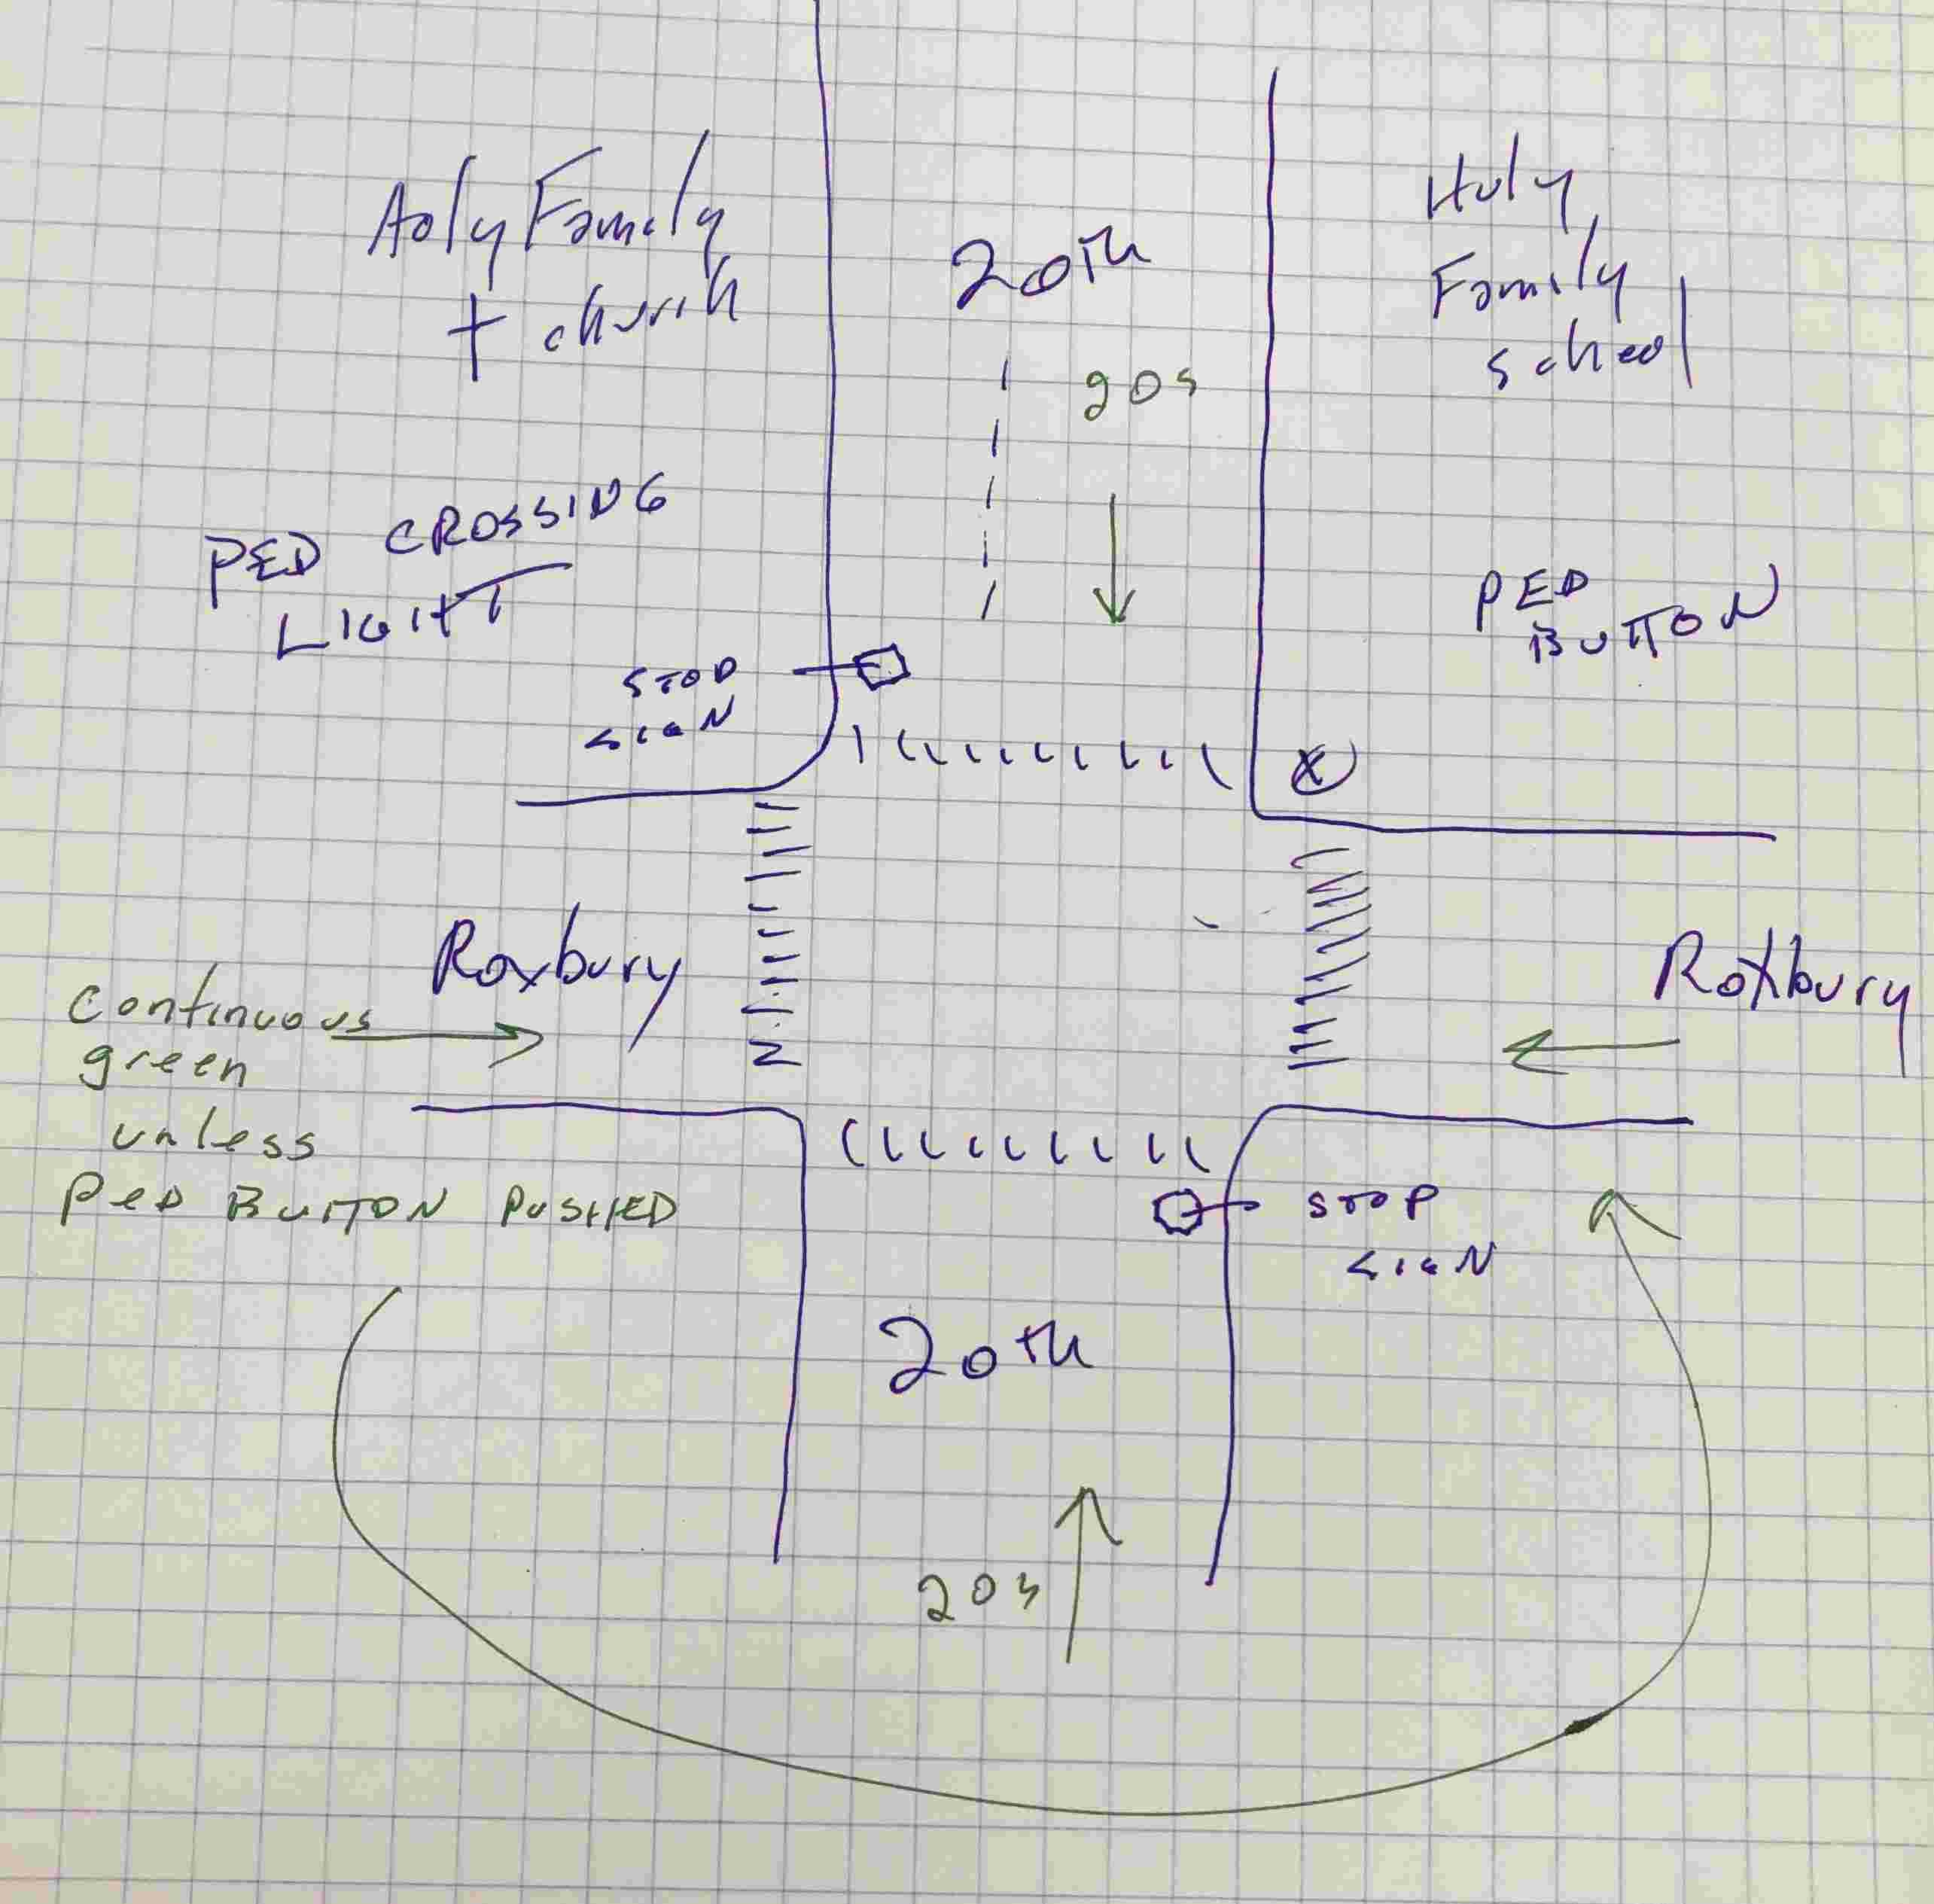 Holy Family
church
20th
Holy
Family
school
90s
PED CROSSING
LIGHT
PED
BUTTON
STOP
SIGN
Roxbury
Roxbury
Continuous
green
unless
PED BUTTON PUSHED
STOP
SIGN
20th
20s